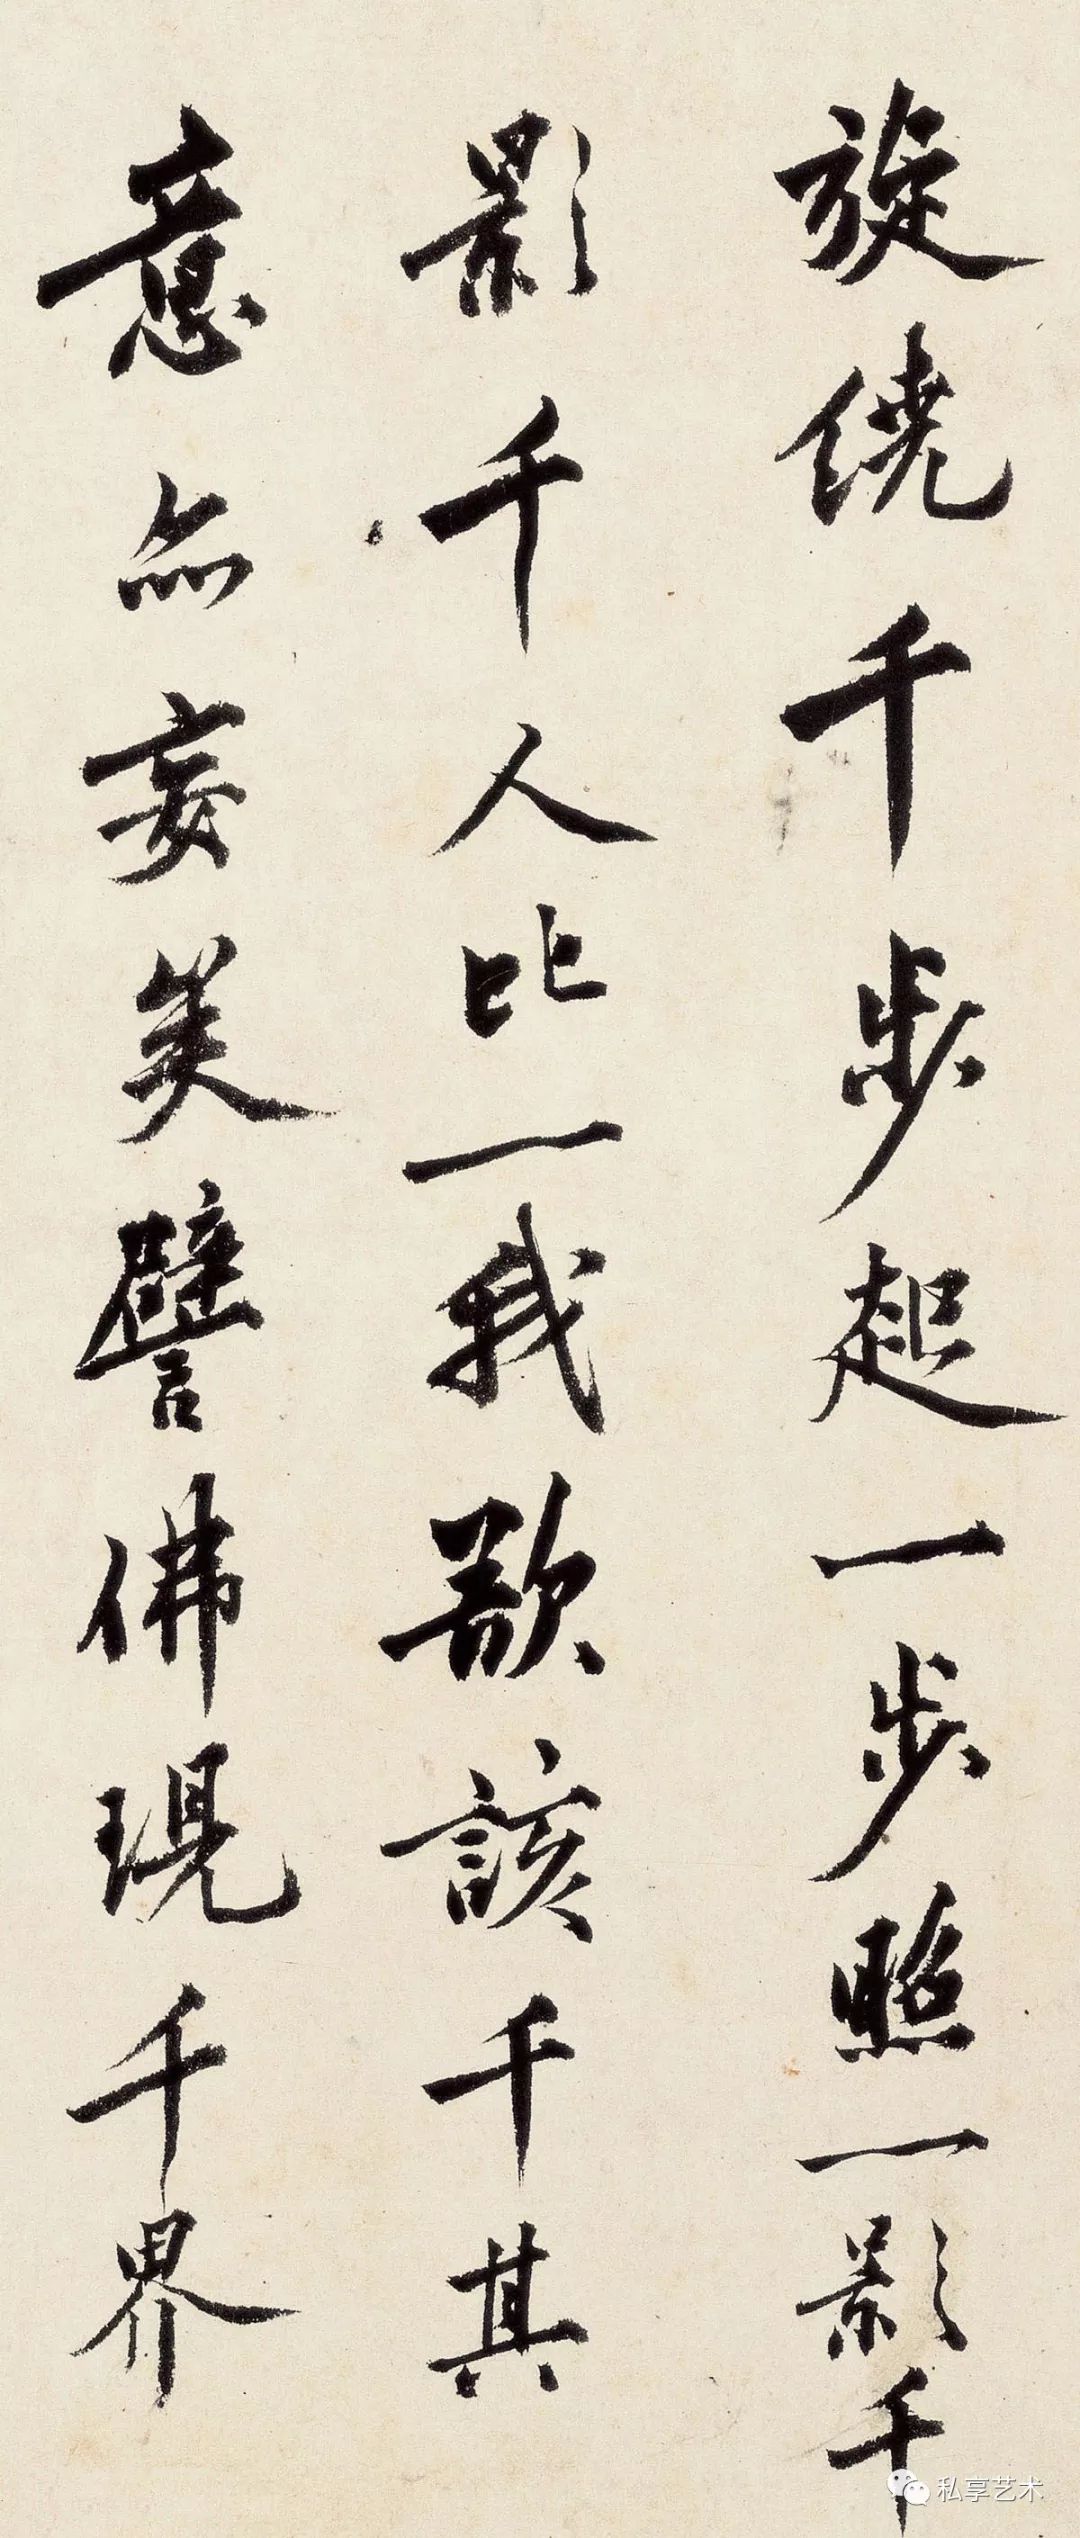 旋繞千步起一步照一影千
影千人比一我歌該千其
意亦妄矣譬佛現千界
私享艺术